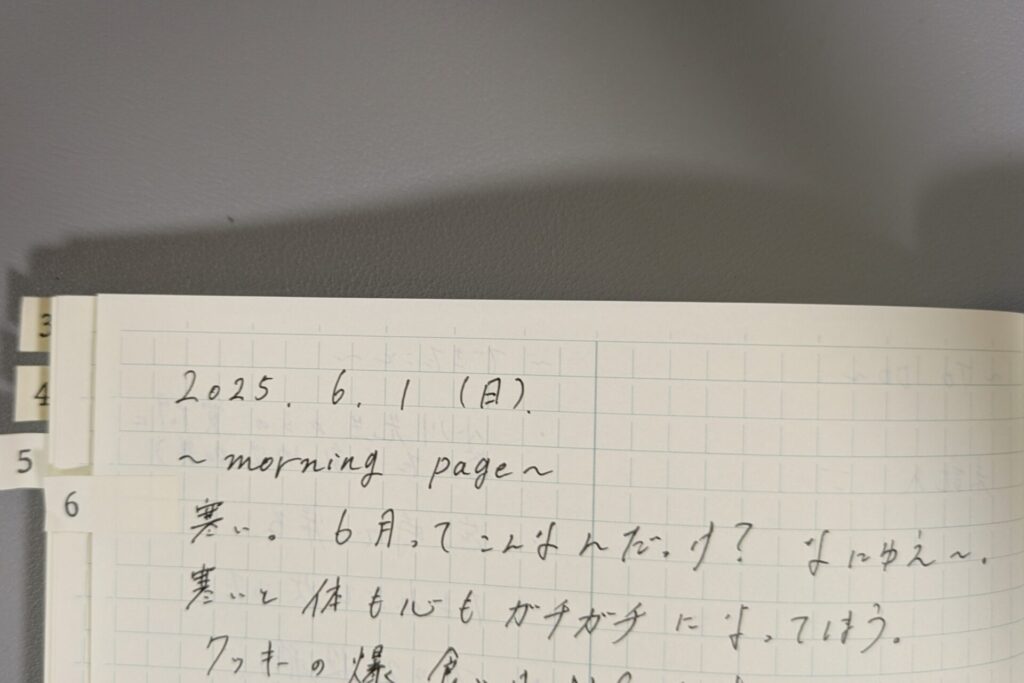 3
4
5
6
2025. 6. 1 (日).
~ morning page ~
寒い。 6月ってこんなんだっけ? なにゆえ~.
寒いと体も心もガチガチになってしまう。
クッキーの爆食い